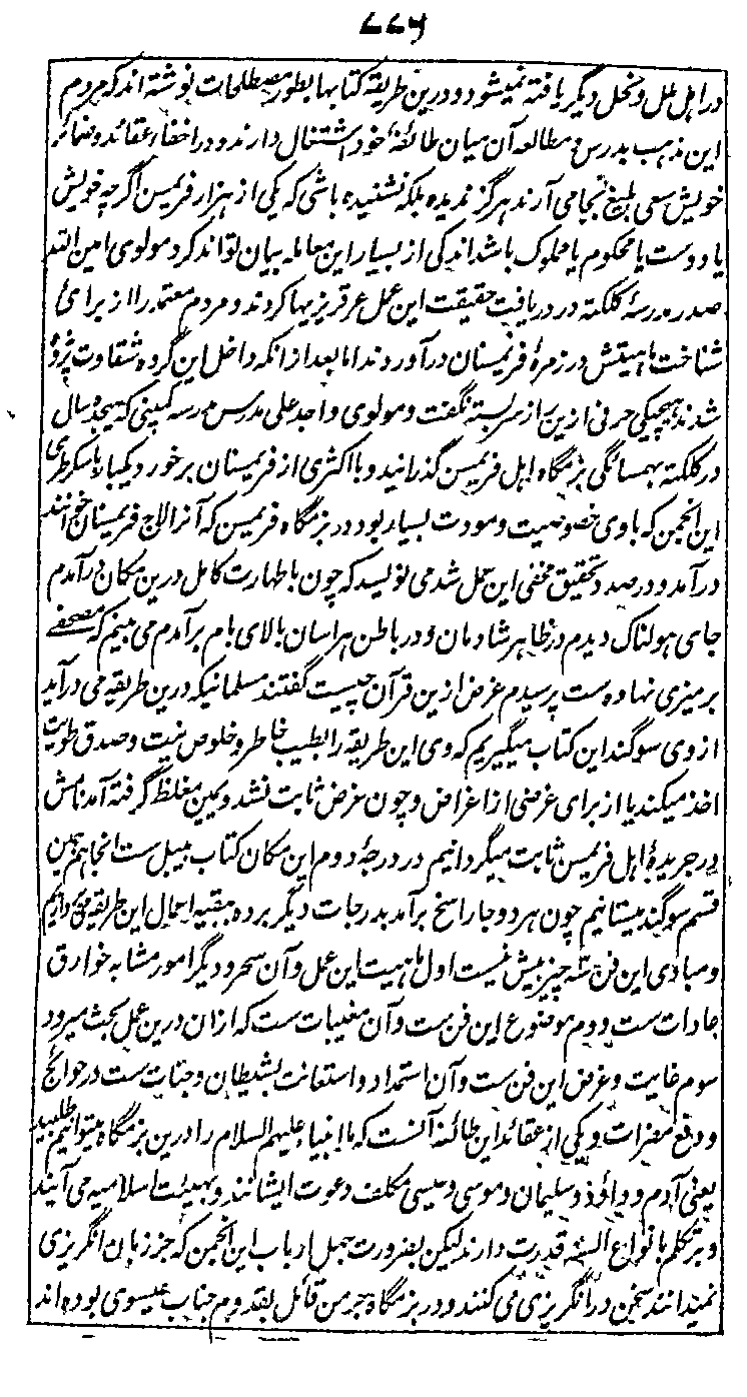 ۷۷۶
در اہل ملل و نحل دیگر یافتہ نمیشود و درین طریقہ کتابہا بطور مصطلحات نوشتہ اند کہ مردم
این مذہب بدرس و مطالعہ آن میان طائفہ خود اشتغال دارند و در اخفاء عقائد و ضمائر
خویش سعی بلیغ بجا می آرند ہرگز ندیدہ بلکہ نشنیدہ باشی کہ یکی از ہزار فریمسن اگرچہ خویش
یا دوست یا محکوم یا مملوک باشد اندکی از بسیار این معاملہ بیان تواند کرد مولوی امین اللہ
صدر مدرسہ کلکتہ در دریافت حقیقت این عمل عرقریزیہا کردند و مردم معتمد را از برای
شناخت ماہیتش در زمرۂ فریمسنان درآوردند اما بعد از انکہ داخل این گروہ شقاوت پژوہ
شدند ہیچیکی حرفی ازین راز سربستہ نگفت و مولوی واجد علی مدرس مدرسہ کمپنی کہ ہیجدہ سال
در کلکتہ بہمسائگی بزمگاہ اہل فریمسن گذرانید و با اکثری از فریمسنان برخورد یکبار با سکرطری
این انجمن کہ باوی خصوصیت و مودت بسیار بود در بزمگاہ فریمسن کہ آنرا لاج فریمسنان خوانند
درآمد و در صدد تحقیق مخفی این عمل شد می نویسد کہ چون باطہارت کامل درین مکان درآمدم
جای ہولناک دیدم در ظاہر شادمان و در باطن ہراسان بالای بام برآمدم می بینم کہ مصحفے
بر میزی نہادہ ست پرسیدم غرض ازین قرآن چیست گفتند مسلمانیکہ درین طریقہ می درآید
از وی سوگند این کتاب میگیریم کہ وی این طریقہ را بطیب خاطر و خلوص نیت و صدق طویت
اخذ میکند یا از برای غرضی از اغراض و چون غرض ثابت نشد و یمین مغلظ گرفتہ آمد نامش
در جریدۂ اہل فریمسن ثابت میگردانیم در درجۂ دوم این مکان کتاب بیبل ست انجا ہم ہمین
قسم سوگند میستانیم چون ہر دو جا راسخ برآمد بدرجات دیگر بردہ ببقیہ اعمال این طریقہ می‌درایم
و مبادی این فن سہ چیز بیش نیست اول ماہیت این عمل و آن سحر و دیگر امور مشابہ خوارق
عادات ست و دوم موضوع این فن ست و آن مغیبات ست کہ ازان درین عمل بحث میرود
سوم غایت و غرض این فن ست و آن استمداد و استعانت بشیطان و جنات ست در حوائج
و دفع مضرات و یکی از عقائد این طائفہ آنست کہ ما انبیاء علیہم السلام را درین بزمگاہ میتوانیم طلبید
یعنی آدم و داؤد و سلیمان و موسی و عیسی مکلف دعوت ایشانند و بہیئت اسلامیہ می آیند
و بر تکلم بانواع السنہ قدرت دارند لیکن بضرورت جہل ارباب این انجمن کہ جز زبان انگریزی
نمیدانند سخن در انگریزی می کنند و در بزمگاہ جرمن قائل بقدوم جناب عیسوی بودہ اند